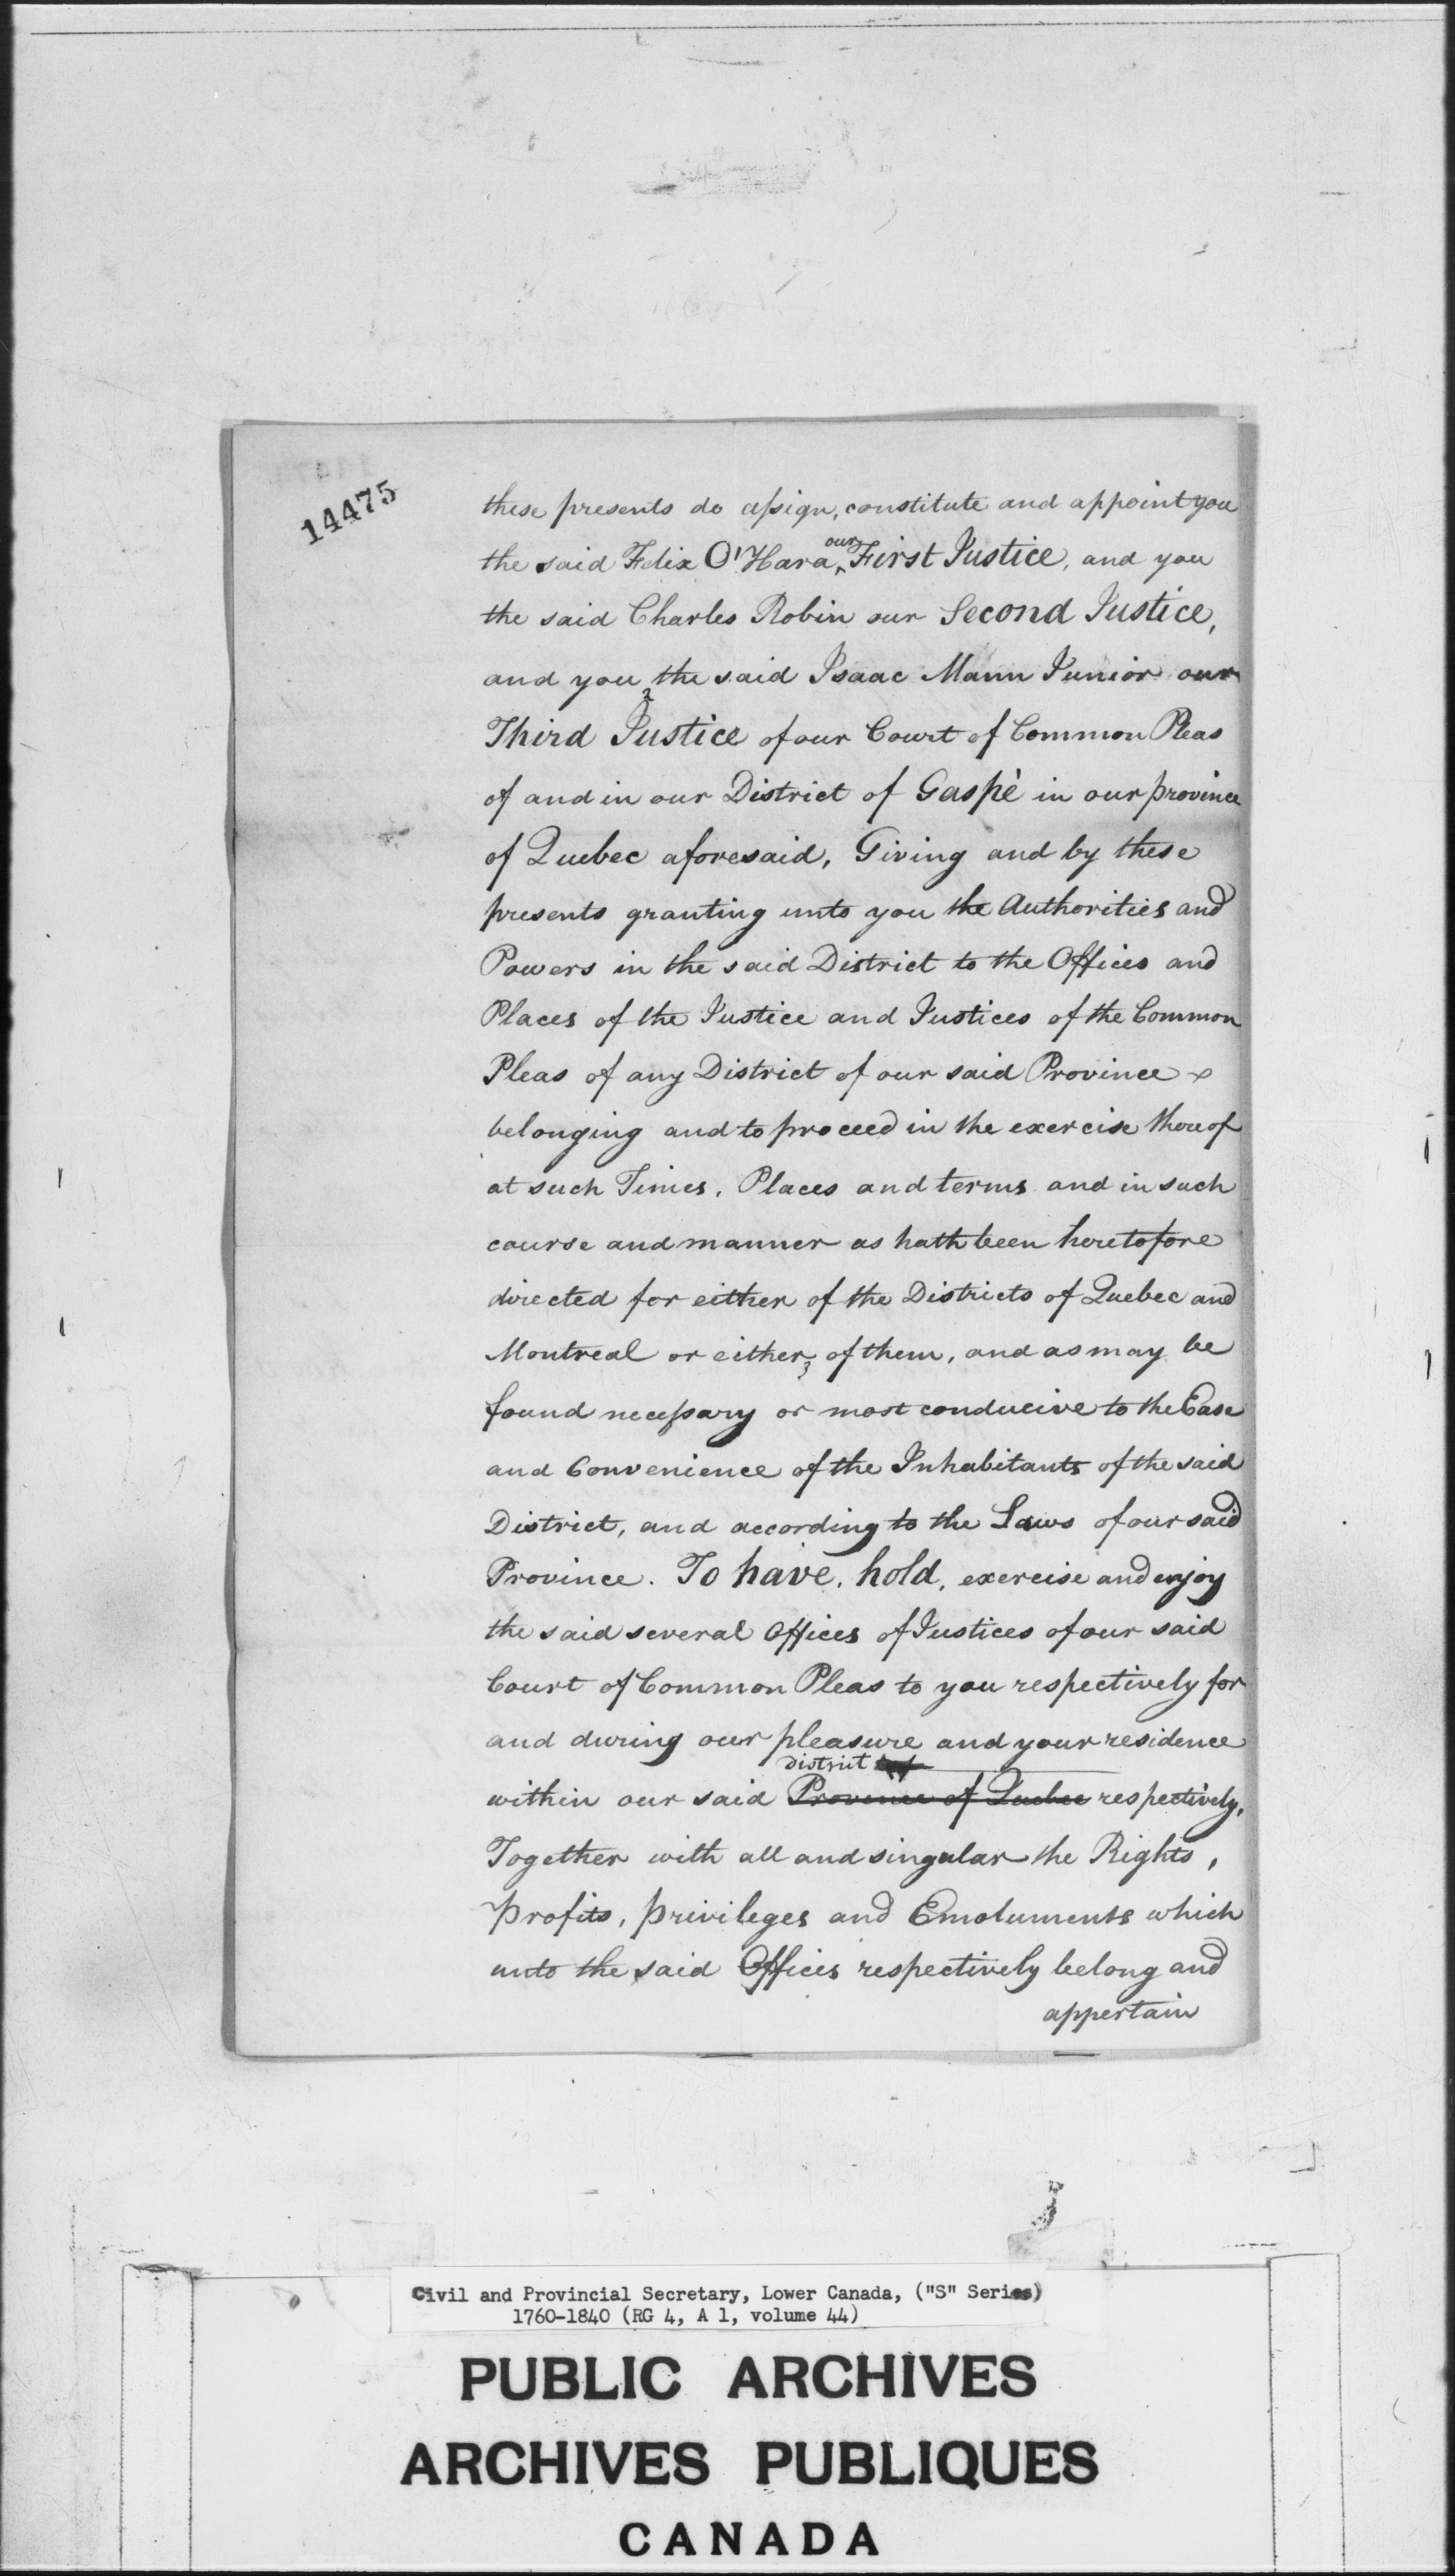 14475
these presents do assign, constitute and appoint you
the said Felix O'Hara, our First Justice, and you
the said Charles Robin our Second Justice,
and you the said Isaac Mann Junior our
Third Justice of our Court of Common Pleas
of and in our District of Gaspé in our province
of Quebec aforesaid, Giving and by these
presents granting unto you the Authorities and
Powers in the said District to the Offices and
Places of the Justice and Justices of the Common
Pleas of any District of our said Province
belonging and to proceed in the exercise thereof
at such Times, Places and terms and in such
course and manner as hath been heretofore
directed for either of the Districts of Quebec and
Montreal or either of them, and as may be
found necessary or most conducive to the Ease
and Convenience of the Inhabitants of the said
District, and according to the Laws of our said
Province. To have, hold, exercise and enjoy
the said several Offices of Justices of our said
Court of Common Pleas to you respectively for
and during our pleasure and your residence
District
within our said Province of Quebec respectively,
Together with all and singular the Rights,
profits, privileges and Emoluments which
unto the said Offices respectively belong and
appertain
Civil and Provincial Secretary, Lower Canada, ("S" Series)
1760-1840 (RG 4, A 1, volume 44)
PUBLIC ARCHIVES
ARCHIVES PUBLIQUES
CANADA